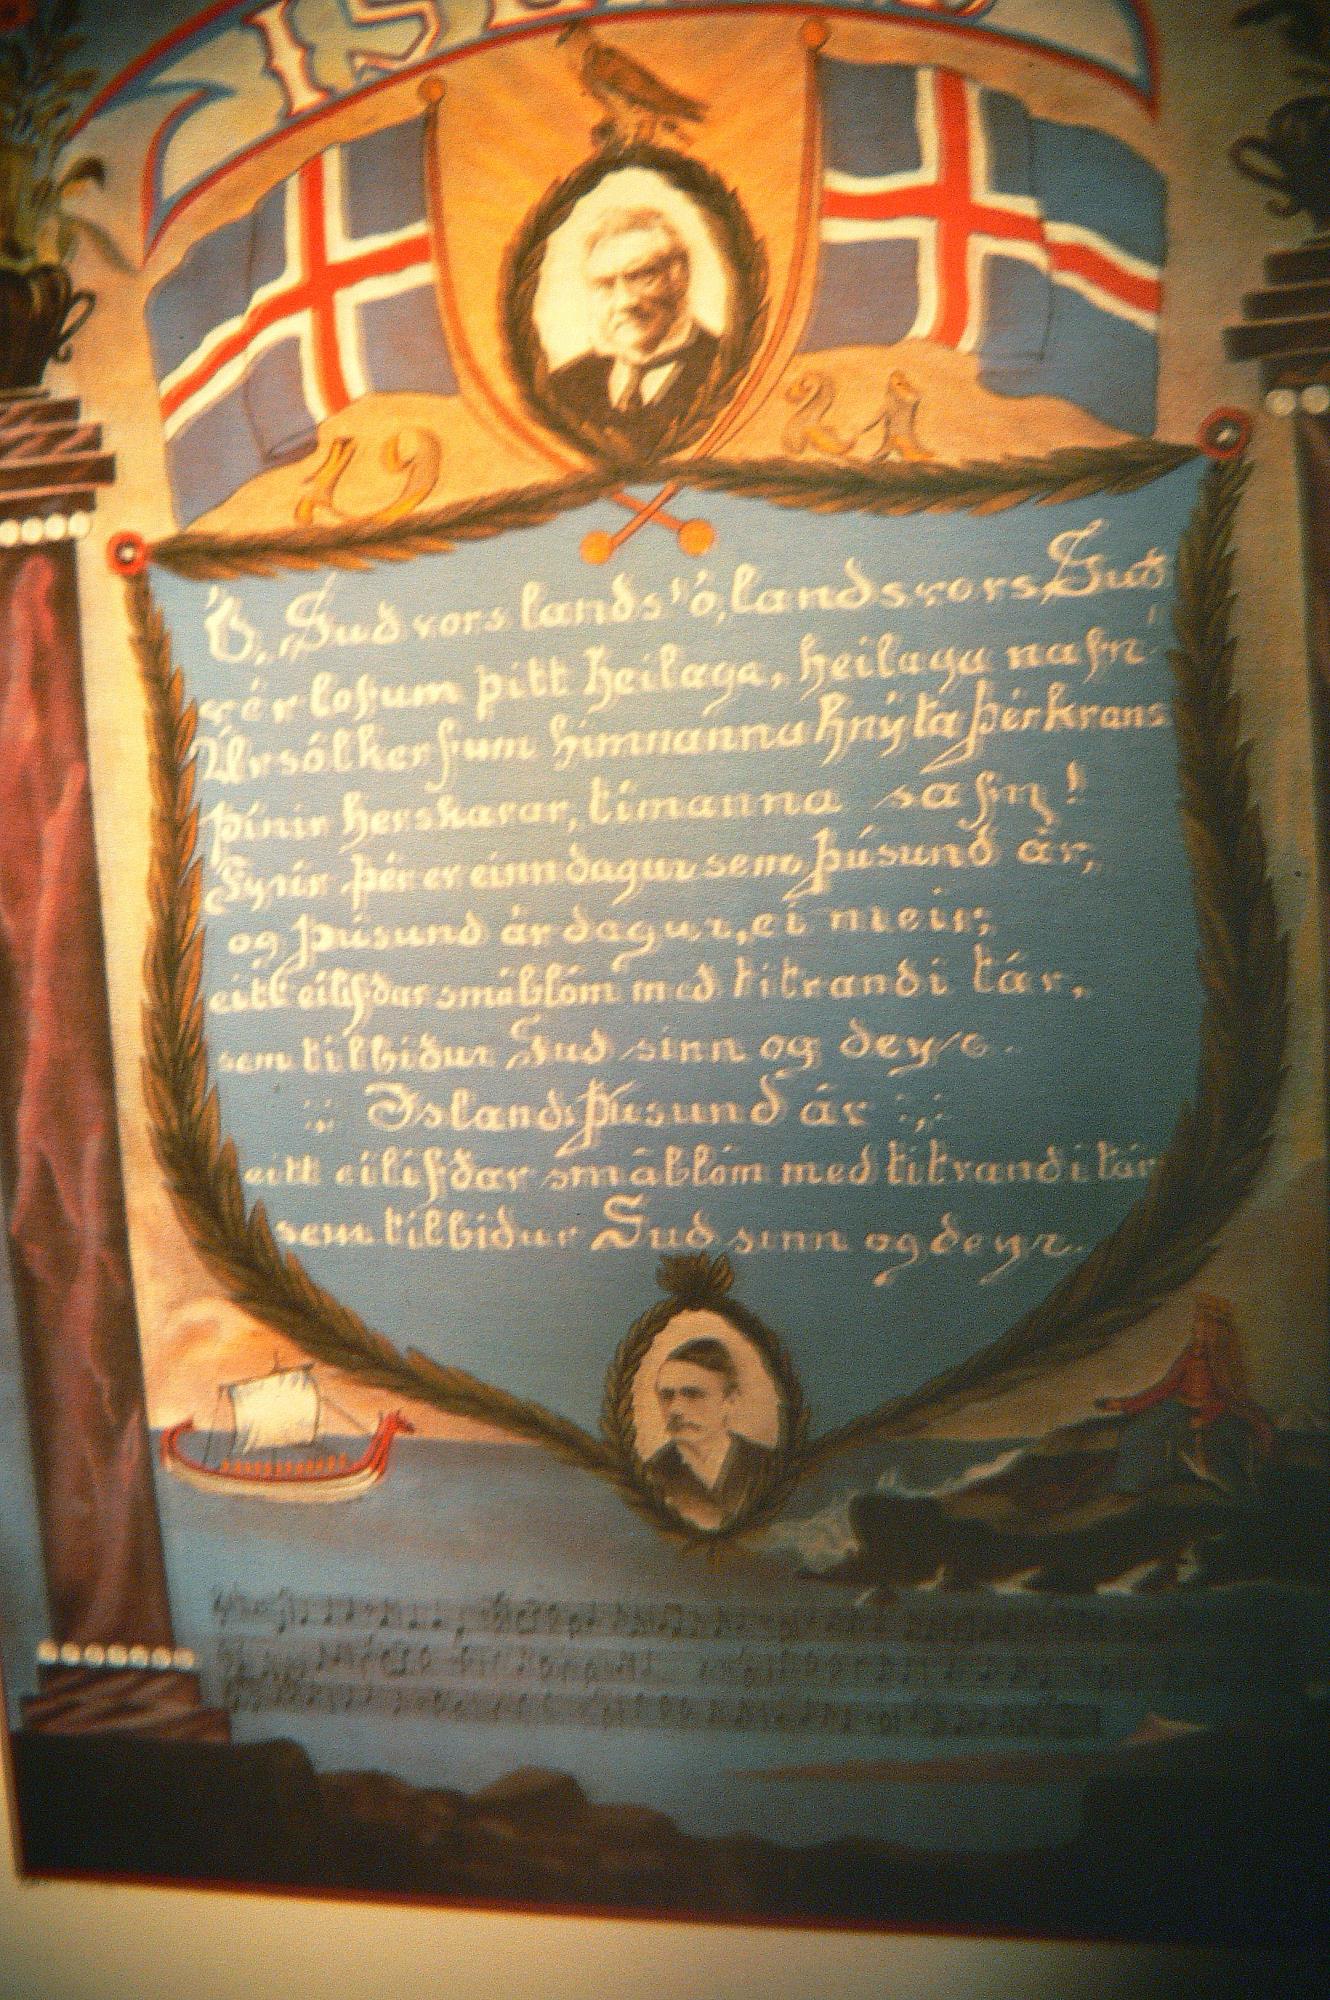 ISL
19 21
Ó, Guð vors lands! ó, lands vors Guð
vér lofum þitt heilaga, heilaga nafn!
Úr sólkerfum himnanna hnýta þér krans
þínir herskarar, tímanna safn!
Fyrir þér er einn dagur sem þúsund ár,
og þúsund ár dagur, ei meir;
eitt eilífðar smáblóm með titrandi tár,
sem tilbiður Guð sinn og deyr.
Íslands þúsund ár
eitt eilífðar smáblóm með titrandi tár
sem tilbiður Guð sinn og deyr.